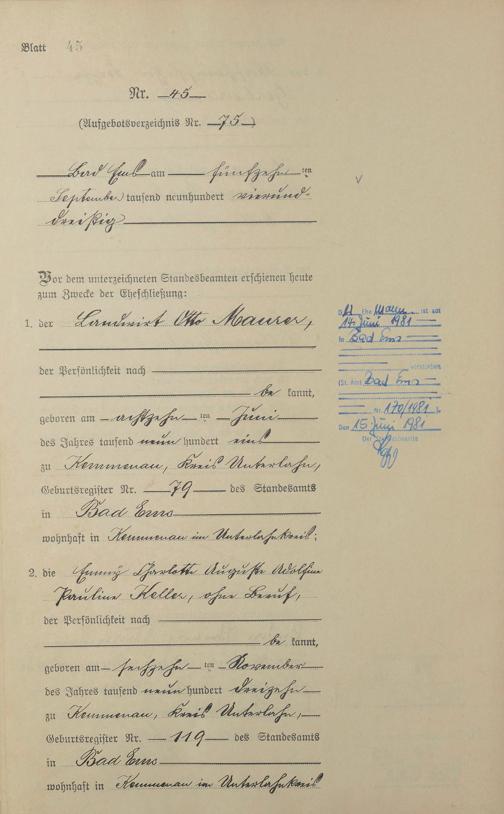 Blatt 45
Nr. 45
(Aufgebotsverzeichnis Nr. 75)
Bad Ems am fünfzehn ten
September tausend neunhundert vierund-
dreißig
Vor dem unterzeichneten Standesbeamten erschienen heute
zum Zwecke der Eheschließung:
1. der Landwirt Otto Maurer,
der Persönlichkeit nach
be kannt,
geboren am achtzehn ten Juni
des Jahres tausend neun hundert eins
zu Kemmenau, Kreis Unterlahn,
Geburtsregister Nr. 79 des Standesamts
in Bad Ems
wohnhaft in Kemmenau im Unterlahnkreis;
2. die Emmy Charlotte Auguste Adolfine
Pauline Keller, ohne Beruf,
der Persönlichkeit nach
be kannt,
geboren am sechzehn ten November
des Jahres tausend neun hundert dreizehn
zu Kemmenau, Kreis Unterlahn,
Geburtsregister Nr. 119 des Standesamts
in Bad Ems
wohnhaft in Kemmenau im Unterlahnkreis
Ehemann ist am
14. Juni 1981
in Bad Ems
verstorben
(St. Amt Bad Ems
Nr. 170/1981).
Den 15. Juni 1981
Der Standesbeamte